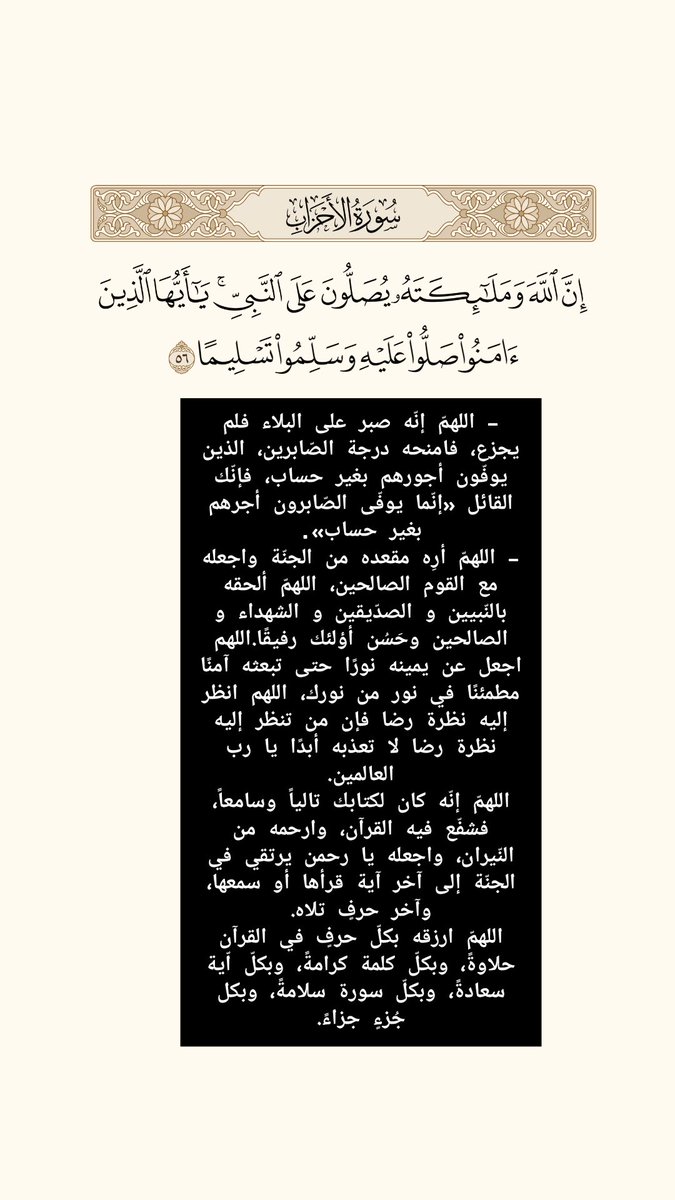 سُورَةُ الأَحْزَابِ
إِنَّ ٱللَّهَ وَمَلَٰٓئِكَتَهُۥ يُصَلُّونَ عَلَى ٱلنَّبِيِّۚ يَٰٓأَيُّهَا ٱلَّذِينَ
ءَامَنُواْ صَلُّواْ عَلَيْهِ وَسَلِّمُواْ تَسْلِيمًا ٥٦
– اللهمّ إنّه صبر على البلاء فلم
يجزع، فامنحه درجة الصّابرين، الذين
يوفّون أجورهم بغير حساب، فإنّك
القائل «إنّما يوفّى الصّابرون أجرهم
بغير حساب».
– اللهمّ أرِه مقعده من الجنّة واجعله
مع القوم الصالحين، اللهمّ ألحقه
بالنّبيين و الصدّيقين و الشهداء و
الصالحين وحَسُن أؤلئك رفيقًا.اللهم
اجعل عن يمينه نورًا حتى تبعثه آمنًا
مطمئنًا في نور من نورك، اللهم انظر
إليه نظرة رضا فإن من تنظر إليه
نظرة رضا لا تعذبه أبدًا يا رب
العالمين.
اللهمّ إنّه كان لكتابك تالياً وسامعاً،
فشفّع فيه القرآن، وارحمه من
النّيران، واجعله يا رحمن يرتقي في
الجنّة إلى آخر آية قرأها أو سمعها،
وآخر حرفٍ تلاه.
اللهمّ ارزقه بكلّ حرفٍ في القرآن
حلاوةً، وبكلّ كلمة كرامةً، وبكلّ آية
سعادةً، وبكلّ سورة سلامةً، وبكل
جُزءٍ جزاءً.